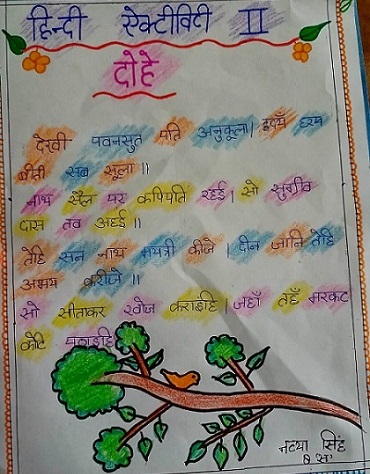 हिन्दी सेक्टीविटी II
दोहे
देखी पवनसुत पति अनुकूला। हृदयँ हरष
बीती सब सूला॥
नाथ सैल पर कपिपति रहई। सो सुग्रीव
दास तव अहई॥
तेहि सन नाथ मयत्री कीजे। दीन जानि तेहि
अभय करीजे॥
सो सीताकर खोज कराइहि। जहाँ तहँ मरकट
कोटि पठाइहि
नव्या सिंह